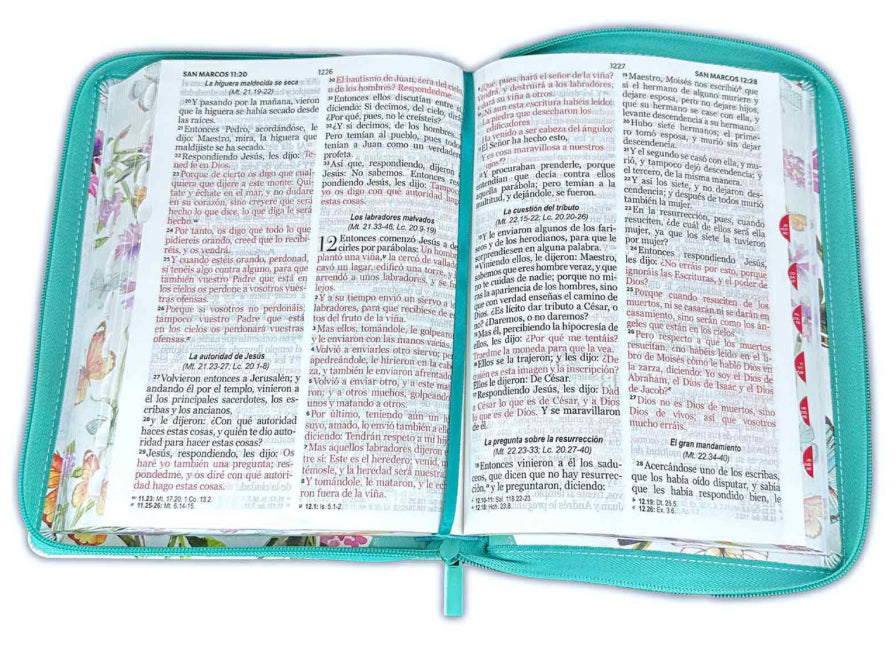 SAN MARCOS 11:20
1226
La higuera maldecida se seca
(Mt. 21.19-22)
20 Y pasando por la mañana, vieron
que la higuera se había secado desde
las raíces.
21 Entonces Pedro, acordándose, le
dijo: Maestro, mira, la higuera que
maldijiste se ha secado.
22 Respondiendo Jesús, les dijo: Te-
ned fe en Dios.
23 Porque de cierto os digo que cual-
quiera que dijere a este monte: Quí-
tate y échate en el mar, y no dudare
en su corazón, sino creyere que será
hecho lo que dice, lo que diga le será
hecho.
24 Por tanto, os digo que todo lo que
pidiereis orando, creed que lo recibi-
réis, y os vendrá.
25 Y cuando estéis orando, perdonad,
si tenéis algo contra alguno, para que
también vuestro Padre que está en
los cielos os perdone a vosotros vues-
tras ofensas.
26 Porque si vosotros no perdonáis,
tampoco vuestro Padre que está
en los cielos os perdonará vuestras
ofensas.
La autoridad de Jesús
(Mt. 21.23-27; Lc. 20.1-8)
27 Volvieron entonces a Jerusalén; y
andando él por el templo, vinieron a
él los principales sacerdotes, los es-
cribas y los ancianos,
28 y le dijeron: ¿Con qué autoridad
haces estas cosas, y quién te dio auto-
ridad para hacer estas cosas?
29 Jesús, respondiendo, les dijo: Os
haré yo también una pregunta; res-
pondedme, y os diré con qué autori-
dad hago estas cosas.
11.23: Mt. 17.20; 1 Co. 13.2.
11.25-26: Mt. 6.14-15.
30 El bautismo de Juan, ¿era del cielo,
o de los hombres? Respondedme.
31 Entonces ellos discutían entre
diciendo: Si decimos, del cielo, dirá:
¿Por qué, pues, no le creísteis?
32 ¿Y si decimos, de los hombres
Pero temían al pueblo, pues todos
tenían a Juan como un verdadero
profeta.
33 Así que, respondiendo, dijeron
Jesús: No sabemos. Entonces res-
pondiendo Jesús, les dijo: Tampoco
yo os digo con qué autoridad hago
estas cosas.
Los labradores malvados
(Mt. 21.33-46; Lc. 20.9-19)
12 Entonces comenzó Jesús a de-
cirles por parábolas: Un hombre
plantó una viña, la cercó de vallado,
cavó un lagar, edificó una torre, y
arrendó a unos labradores, y se fue
lejos.
2 Y a su tiempo envió un siervo a los
labradores, para que recibiese de es-
tos del fruto de la viña.
3 Mas ellos, tomándole, le golpearon,
y le enviaron con las manos vacías.
4 Volvió a enviarles otro siervo; pero
apedreándole, le hirieron en la cabe-
za, y también le enviaron afrentado.
5 Volvió a enviar otro, y a este mata-
ron; y a otros muchos, golpeando
unos y matando a otros.
6 Por último, teniendo aún un hijo
suyo, amado, lo envió también a ellos,
diciendo: Tendrán respeto a mi hijo.
7 Mas aquellos labradores dijeron en-
tre sí: Este es el heredero; venid, ma-
témosle, y la heredad será nuestra.
8 Y tomándole, le mataron, y le echa-
ron fuera de la viña.
12.1: Is. 5.1-2.
1227
SAN MARCOS 12:28
¿Qué, pues, hará el señor de la viña?
Vendrá, y destruirá a los labradores,
y dará su viña a otros.
¿Ni aun esta escritura habéis leído:
La piedra que desecharon los
edificadores
Ha venido a ser cabeza del ángulo;
El Señor ha hecho esto,
Y es cosa maravillosa a nuestros
ojos?
Y procuraban prenderle, porque
entendían que decía contra ellos
aquella parábola; pero temían a la
multitud, y dejándole, se fueron.
La cuestión del tributo
(Mt. 22.15-22; Lc. 20.20-26)
Y le enviaron algunos de los fari-
seos y de los herodianos, para que le
sorprendiesen en alguna palabra.
Viniendo ellos, le dijeron: Maestro,
sabemos que eres hombre veraz, y que
no te cuidas de nadie; porque no mi-
ras la apariencia de los hombres, sino
que con verdad enseñas el camino de
Dios. ¿Es lícito dar tributo a César, o
no? ¿Daremos, o no daremos?
Mas él, percibiendo la hipocresía de
ellos, les dijo: ¿Por qué me tentáis?
Traedme la moneda para que la vea.
Ellos se la trajeron; y les dijo: ¿De
quién es esta imagen y la inscripción?
Ellos le dijeron: De César.
Respondiendo Jesús, les dijo: Dad
a César lo que es de César, y a Dios
lo que es de Dios. Y se maravillaron
de él.
La pregunta sobre la resurrección
(Mt. 22.23-33; Lc. 20.27-40)
Entonces vinieron a él los sadu-
ceos, que dicen que no hay resurrec-
ción, y le preguntaron, diciendo:
12.10-11: Sal. 118.22-23.
12.18: Hch. 23.8.
19 Maestro, Moisés nos escribió que
si el hermano de alguno muriere y
dejare esposa, pero no dejare hijos,
que su hermano se case con ella, y
levante descendencia a su hermano.
20 Hubo siete hermanos; el prime-
ro tomó esposa, y murió sin dejar
descendencia.
21 Y el segundo se casó con ella, y mu-
rió, y tampoco dejó descendencia; y
el tercero, de la misma manera.
22 Y así los siete, y no dejaron des-
cendencia; y después de todos murió
también la mujer.
23 En la resurrección, pues, cuando
resuciten, ¿de cuál de ellos será ella
mujer, ya que los siete la tuvieron
por mujer?
24 Entonces respondiendo Jesús,
les dijo: ¿No erráis por esto, porque
ignoráis las Escrituras, y el poder de
Dios?
25 Porque cuando resuciten de los
muertos, ni se casarán ni se darán en
casamiento, sino serán como los án-
geles que están en los cielos.
26 Pero respecto a que los muertos
resucitan, ¿no habéis leído en el li-
bro de Moisés cómo le habló Dios en
la zarza, diciendo: Yo soy el Dios de
Abraham, el Dios de Isaac y el Dios
de Jacob?
27 Dios no es Dios de muertos, sino
Dios de vivos; así que vosotros
mucho erráis.
El gran mandamiento
(Mt. 22.34-40)
28 Acercándose uno de los escribas,
que los había oído disputar, y sabía
que les había respondido bien, le
12.19: Dt. 25.5.
12.26: Ex. 3.6.